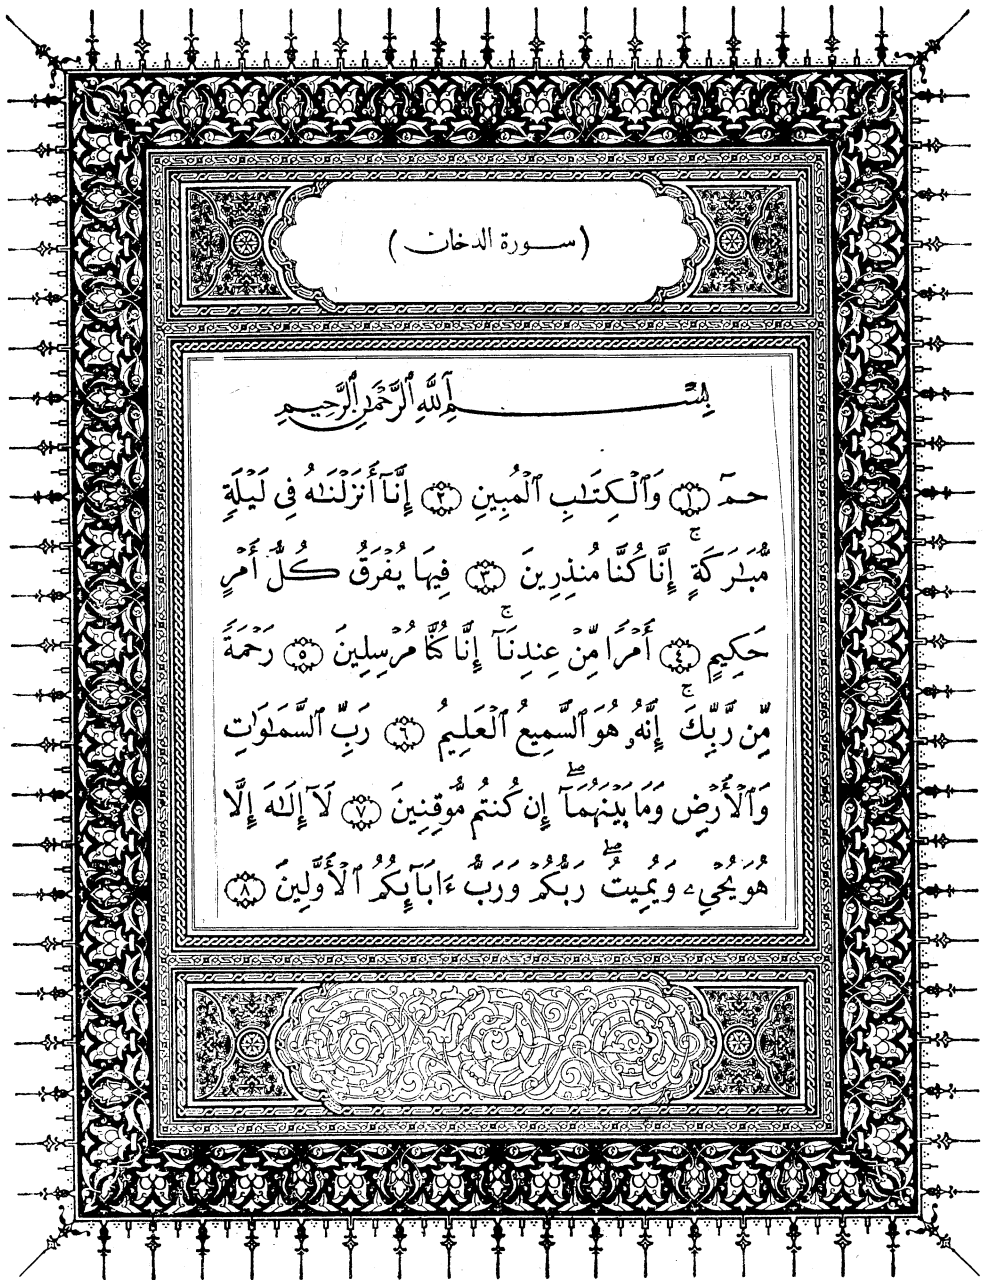 (سورة الدخان)
بِسْمِ ٱللَّهِ ٱلرَّحْمَٰنِ ٱلرَّحِيمِ
حمٓ ١ وَٱلْكِتَٰبِ ٱلْمُبِينِ ٢ إِنَّآ أَنزَلْنَٰهُ فِى لَيْلَةٍ
مُّبَٰرَكَةٍ ۚ إِنَّا كُنَّا مُنذِرِينَ ٣ فِيهَا يُفْرَقُ كُلُّ أَمْرٍ
حَكِيمٍ ٤ أَمْرًا مِّنْ عِندِنَآ ۚ إِنَّا كُنَّا مُرْسِلِينَ ٥ رَحْمَةً
مِّن رَّبِّكَ ۚ إِنَّهُۥ هُوَ ٱلسَّمِيعُ ٱلْعَلِيمُ ٦ رَبِّ ٱلسَّمَٰوَٰتِ
وَٱلْأَرْضِ وَمَا بَيْنَهُمَآ ۖ إِن كُنتُم مُّوقِنِينَ ٧ لَآ إِلَٰهَ إِلَّا
هُوَ يُحْىِۦ وَيُمِيتُ ۖ رَبُّكُمْ وَرَبُّ ءَابَآئِكُمُ ٱلْأَوَّلِينَ ٨